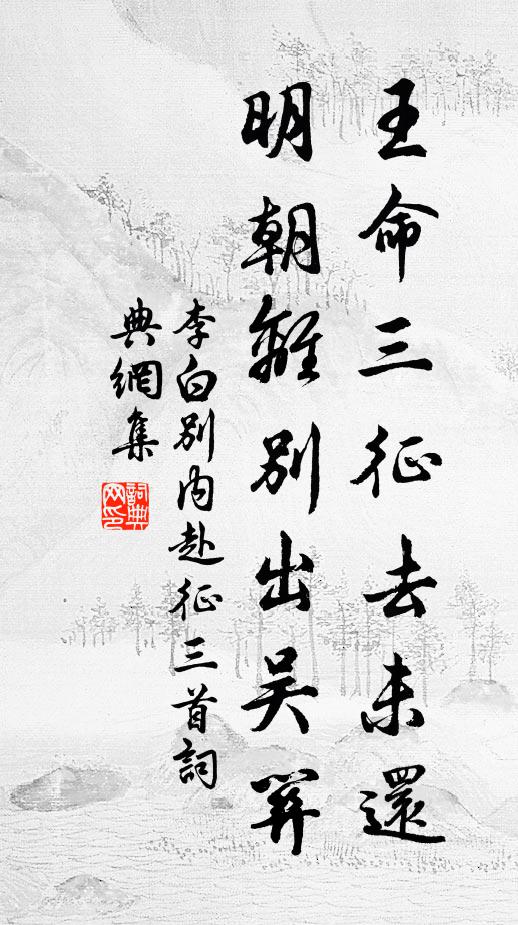 王命三征去未還
明朝離別出吳關
李白別內赴征三首詞
典網集
詞典
网印